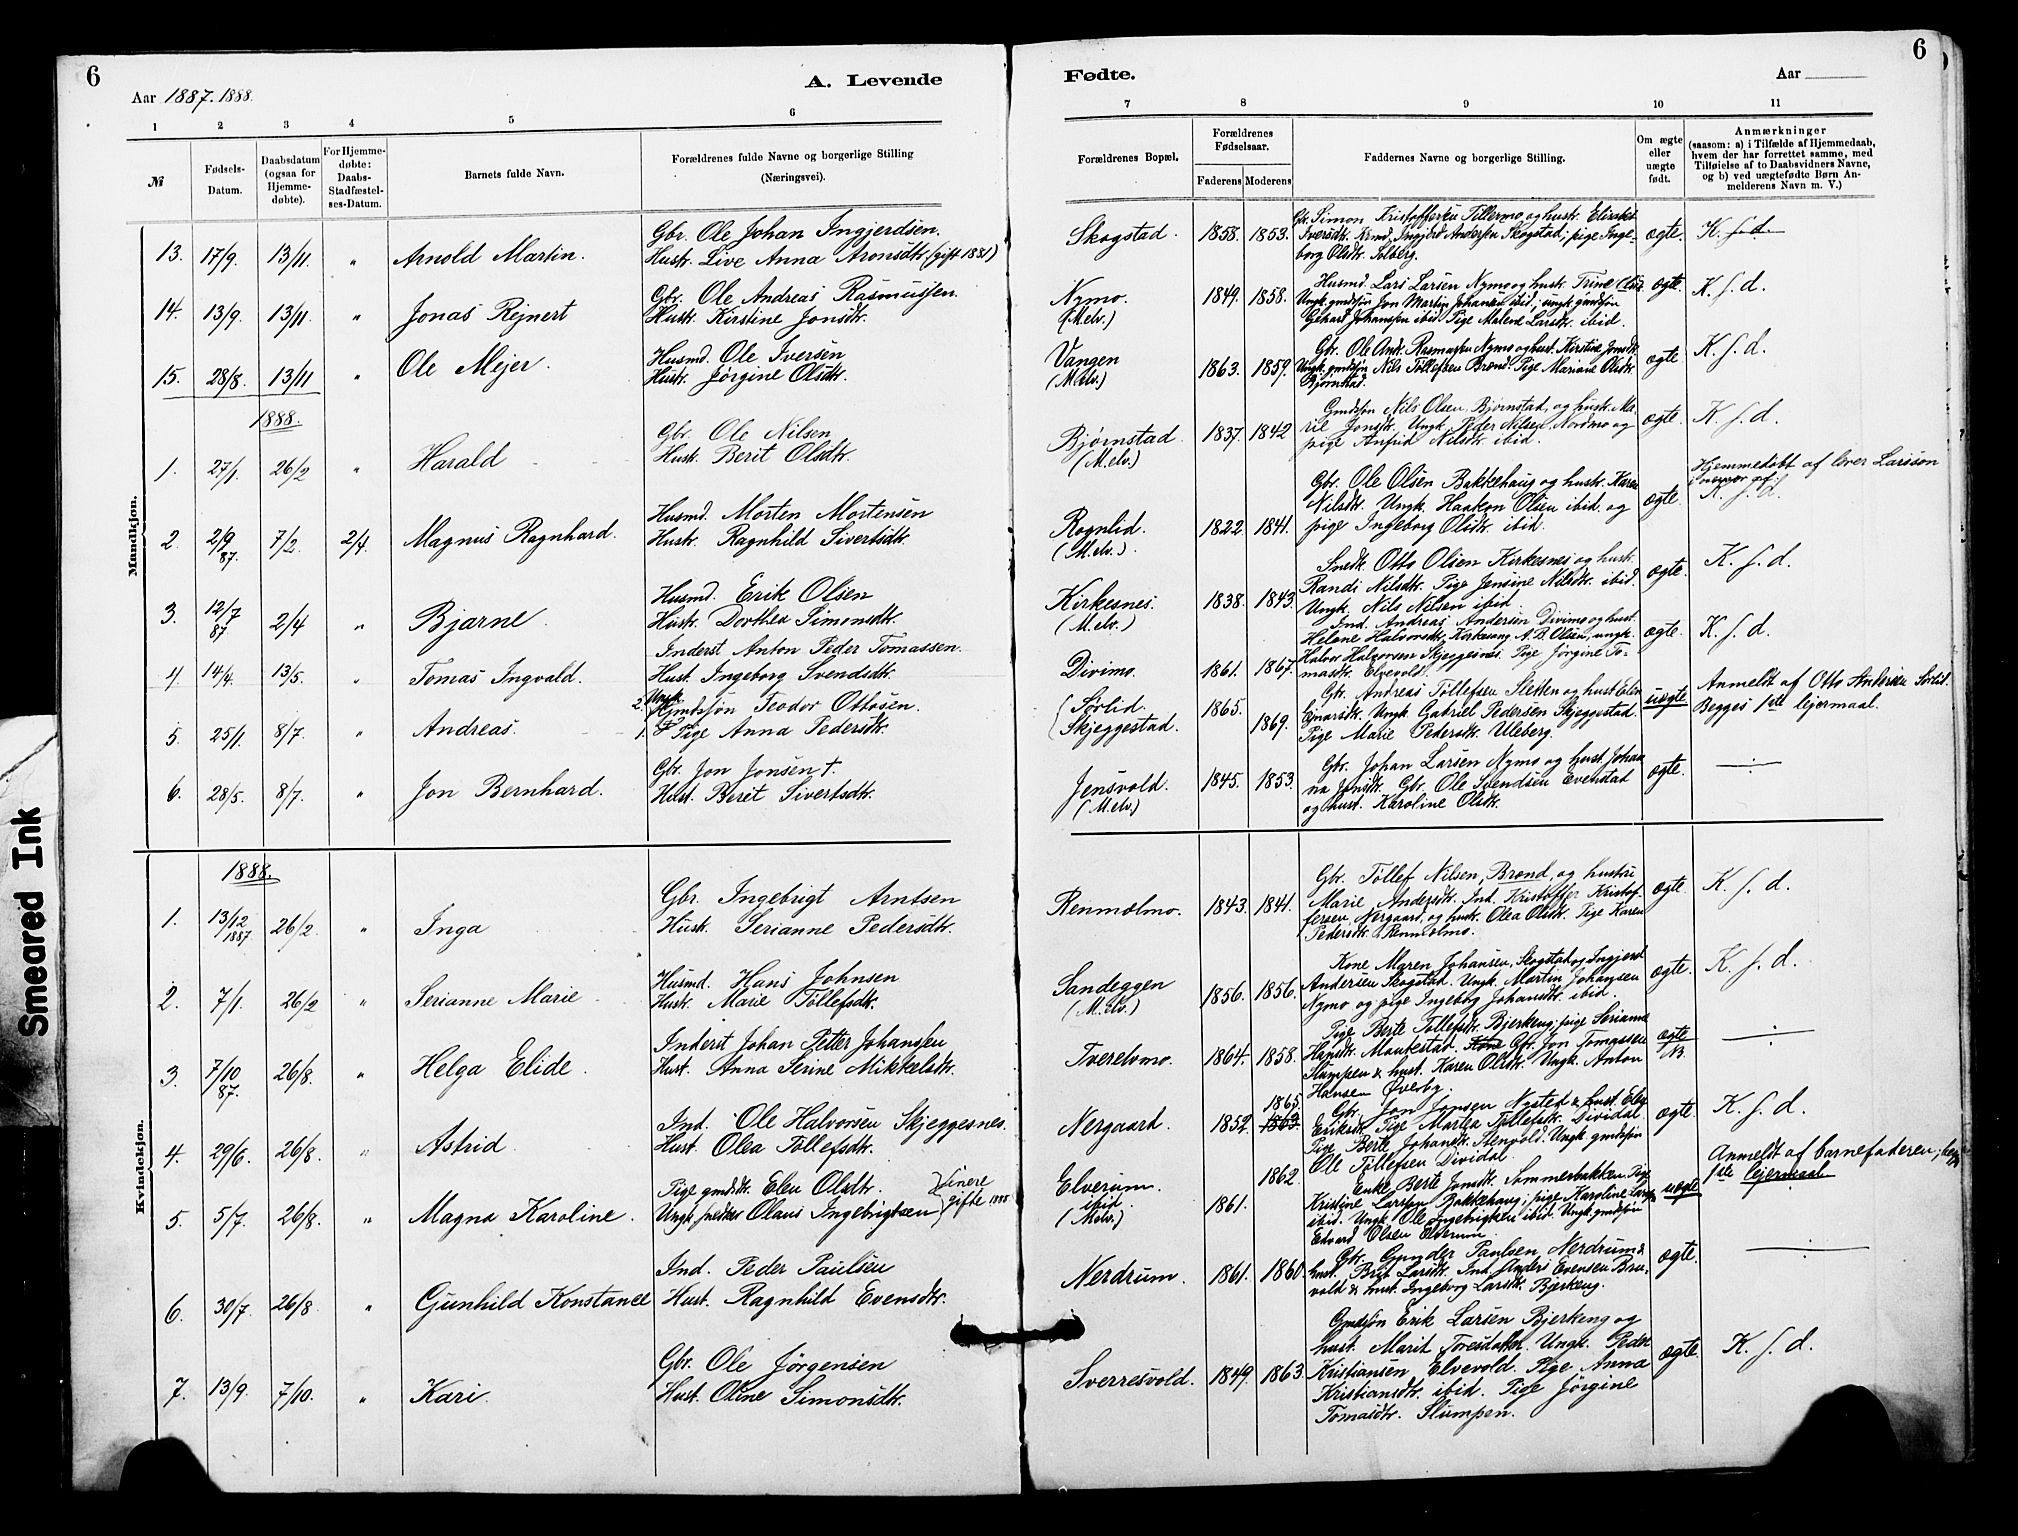 6
A. Levende
Fødte.
6
Aar 1887. 1888.
Aar
1 2 3 4 5 6 7 8 9 10 11
№
Fødsels-
Datum.
Daabsdatum
(ogsaa for
Hjemme-
døbte).
For Hjemme-
døbte:
Daabs-
Stadfæstel-
ses-Datum.
Barnets fulde Navn.
Forældrenes fulde Navne og borgerlige Stilling
(Næringsvei).
Forældrenes Bopæl.
Forældrenes
Fødselsaar.
Faderens Moderens
Faddernes Navne og borgerlige Stilling.
Om ægte
eller
uægte
født.
Anmærkninger
(saasom: a) i Tilfælde af Hjemmedaab,
hvem der har forrettet samme, med
Tilføielse af to Daabsvidners Navne,
og b) ved uægtefødte Børn An-
melderens Navn m. V.)
Mandkjøn.
13. 17/9. 13/11. " Arnold Martin.
Gbr. Ole Johan Ingjerdsen.
Hustr. Live Anna Aronsdtr. (gift 1881)
Skogstad. 1858. 1853.
Gbr. Simon Kristoffersen Tillermo og hustr. Elisabet
Iversdtr. Krmd. Ingjerd Andersen Skogstad; pige Inge-
borg Olsdtr. Solberg.
ægte. K. f. d.
14. 13/9. 13/11. " Jonas Rejnert
Gbr. Ole Andreas Rasmussen.
Hustr. Kirstine Jonsdtr.
Nymo.
(Melv.)
1849. 1858.
Husmd. Lars Larsen Nymo og hustr. Trine
Ungk. gmdsøn Jon Martin Johansen ibid.; ungk. gmdsøn
Gehard Johanssen ibid. Pige Malene Larsdtr. ibid.
ægte. K. f. d.
15. 28/8. 13/11 " Ole Mejer.
Husmd. Ole Iversen
Hustr. Jørgine Olsdtr.
Vangen
(Melv.)
1863. 1859.
Gbr. Ole Andr. Rasmussen Nymo og hust. Kirstine Jonsdtr.
Ungk. gmdsøn Nils Tollefsen Brønd. Pige Mariane Olsdtr.
Bjørnstad.
ægte K. f. d.
1888.
1. 27/1. 26/2 " Harald
Gbr. Ole Nilsen
Hustr. Berit Olsdtr.
Bjørnstad.
(Melv.)
1837. 1842
Gmdssøn Nils Olsen, Bjørnstad, og hustr. Ma-
ril Jonsdtr. Ungk. Peder Nilsen Nordmo og
pige Anfrid Nilsdtr. ibid.
ægte. K. f. d.
2. 2/9 87. 7/2. 2/4. Magnus Ragnhard.
Husmd. Morten Mortensen
Hustr. Ragnhild Sivertsdtr.
Rognlid.
(Melv.).
1822. 1841.
Gbr. Ole Olsen Bakkehaug og hustr. Karen
Nilsdtr. Ungk. Haakon Olsen ibid. og
pige Ingeborg Olsdtr. ibid.
ægte.
Hjemmedøbt af lærer Larsson
K. f. d.
3. 12/7 87 2/4 " Bjarne.
Husmd. Erik Olsen
Hustr. Dorthea Simonsdtr.
Kirkesnes.
(Melv.)
1838. 1843.
Snedk. Otto Olsen Kirkesnes og hustr.
Randi Nilsdtr. Pige Jensine Nilsdtr. ibid.
Ungk. Nils Nilsen ibid
ægte. K. f. d.
4. 14/4. 13/5. " Tomas Ingvald.
Inderst Anton Peder Tomassen.
Hust. Ingeborg Svendsdtr.
Divimo. 1861. 1867.
Ind. Andreas Andersen Divimo og hust.
Helene Halvorsdtr. Kirkesang. A. B. Olsen, ungk.
Halvor Halvorsen Skjeggesnes. Pige Jørgine To-
masdtr. Elvevold.
ægte. K. f. d.
5. 25/1. 8/7. " Andreas.
2. Ungk. Gmdssøn Teodor Ottosen.
1. Pige Anna Pedersdtr.
Sørlid.
Skjeggestad.
1865. 1869.
Gbr. Andreas Tollefsen Sletten og hust Elen
Ejnarsdtr. Ungk. Gabriel Pedersen Skjeggestad.
Pige Marie Pedersdtr. Uleberg.
uægte.
Anmeldt af Otto Andersen Sørlid.
Begges 1ste lejermaal.
6. 28/5. 8/7. " Jon Bernhard.
Gbr. Jon Jonsen †.
Hust. Beret Sivertsdtr.
Jensvold.
(Melv.)
1845. 1853.
Gbr. Johan Larsen Nymo og hust. Johan-
na Jonsdtr. Gbr. Ole Svendsen Evenstad
og hust. Karoline Olsdtr.
ægte.
Kvindekjøn.
1888.
1. 13/12 1887 26/2. " Inga
Gbr. Ingebrigt Arntsen
Hustr. Serianne Pedersdtr.
Renmolmo. 1843. 1841.
Gbr. Tollef Nilsen, Brønd, og hustru
Marie Andersdtr. Ind. Kristoffer Kristof-
fersen, Nergaard, og hustr. Olea Olsdtr. Pige Karen
Pedersdtr. Renmolmo.
ægte. K. f. d.
2. 7/1. 26/2 " Serianne Marie
Husmd. Hans Johnsen
Hustr. Marie Tollefsdtr.
Sandeggen
(Melv.)
1856. 1856.
Kone Maren Johansen, Skogstad og Ingjerd
Andersen Skogstad. Ungk. Martin Johansen
Nymo og pige Ingebog Johansdtr. ibid.
ægte. K. f. d.
3. 7/10 87. 26/8. " Helga Elide.
Inderst Johan Petter Johanssen
Hust. Anna Serine Mikkelsdtr.
Tverelvmo. 1864. 1858.
Pige Berte Tollefsdtr. Bjerkeng; pige Serianna
Hansdtr. Maukestad. Kone Gbr. Jon Tomassen
Slumpen & hust. Karen Olsdtr. Ungk. Anton
Hansen Øverby.
ægte
NB.
4. 29/6. 26/8. " Astrid
Ind. Ole Halvorsen Skjeggesnes.
Hust. Olea Tollefsdtr.
Nergaard. 1852. 1865. 1863.
Gbr. Jon Jonsen Nysted & hust. Elen
Eriksdtr. Pige Martea Tollefsdtr. Dividal.
Pige Berte Johansdtr. Stenvold. Ungk. gmdssøn
Ole Tollefsen Dividal.
ægte. K. f. d.
5. 5/7. 26/8. " Magna Karoline.
Pige gmdsdtr. Elen Olsdtr.
Ungk. snedker Olaus Ingebrigtsen
senere
gifte 1888
Elverum.
ibid.
(Melv.)
1861. 1862
Enke Berte Jonsdtr. Sommerbakken. Pige
Kristine Larsen Bakkehaug; pige Karoline
ibid. Ungk. Ole Ingebrigtsen ibid. Ungk. gmdssøn
Edvard Olsen Elverum.
uægte
Anmeldt af barnefaderen,
1ste lejermaal.
6. 30/7. 26/8. " Gunhild Konstance
Ind. Peder Paulsen
Hust. Ragnhild Evensdtr.
Nerdrum. 1861. 1860.
Gbr. Gunder Paulsen, Nerdrum &
hust. Brit Larsdtr. Ind. Anders Evensen Bru-
vold & hust. Ingeborg Larsdtr. Bjerkeng.
ægte.
7. 13/9. 7/10. " Kari.
Gbr. Ole Jørgensen
Hust. Oline Simonsdtr.
Sverresvold. 1849. 1863.
Gmdssøn Erik Larsen Bjerkeng og
hust. Marit Toresdatter. Ungk. Peder
Kristiansen Elvevold. Pige Anna
Kristiansdtr. ibid. Pige Jørgine
Tomasdtr. Slumpen.
ægte. K. f. d.
Smeared Ink